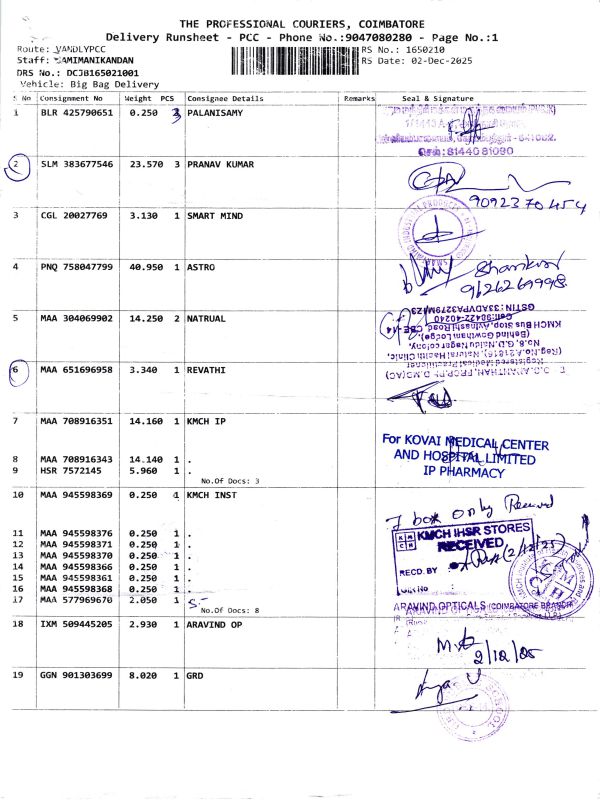 THE PROFESSIONAL COURIERS, COIMBATORE
Delivery Runsheet - PCC - Phone No.:9047080280 - Page No.:1
Route: VANDLYPCC
RS No.: 1650210
Staff: SAMIMANIKANDAN
RS Date: 02-Dec-2025
DRS No.: DCJB165021001
Vehicle: Big Bag Delivery
S No Consignment No Weight PCS Consignee Details Remarks Seal & Signature
1 BLR 425790651 0.250 3 PALANISAMY
செல்:8144081090
2 SLM 383677546 23.570 3 PRANAV KUMAR
9092370454
3 CGL 20027769 3.130 1 SMART MIND
4 PNQ 758047799 40.950 1 ASTRO
Shankar
9626269998
5 MAA 304069902 14.250 2 NATRUAL
GSTIN: 33AOVPA3279M1Z3
Cell:98422-40240
KMCH Bus Stop, Avinashi Road, CBE-14
(Behind Gowtham Lodge),
No.8, G.D.Naidu Nagar colony,
(Reg.No.A21816), Natural Health Clinic,
Registered Medical Practitioner
6 MAA 651696958 3.340 1 REVATHI
7 MAA 708916351 14.160 1 KMCH IP
For KOVAI MEDICAL CENTER
AND HOSPITAL LIMITED
IP PHARMACY
8 MAA 708916343 14.140 1 .
9 HSR 7572145 5.960 1 .
No.Of Docs: 3
10 MAA 945598369 0.250 1 KMCH INST
7 box only Received
11 MAA 945598376 0.250 1 .
12 MAA 945598371 0.250 1 .
13 MAA 945598370 0.250 1 .
14 MAA 945598366 0.250 1 .
15 MAA 945598361 0.250 1 .
16 MAA 945598368 0.250 1 .
17 MAA 577969670 2.050 1 .
No.Of Docs: 8
KMCH IHSR STORES
RECEIVED
RECD. BY :
2/12/25
18 IXM 509445205 2.930 1 ARAVIND OP
ARAVIND OPTICALS (COIMBATORE BRANCH)
2/12/25
19 GGN 901303699 8.020 1 GRD